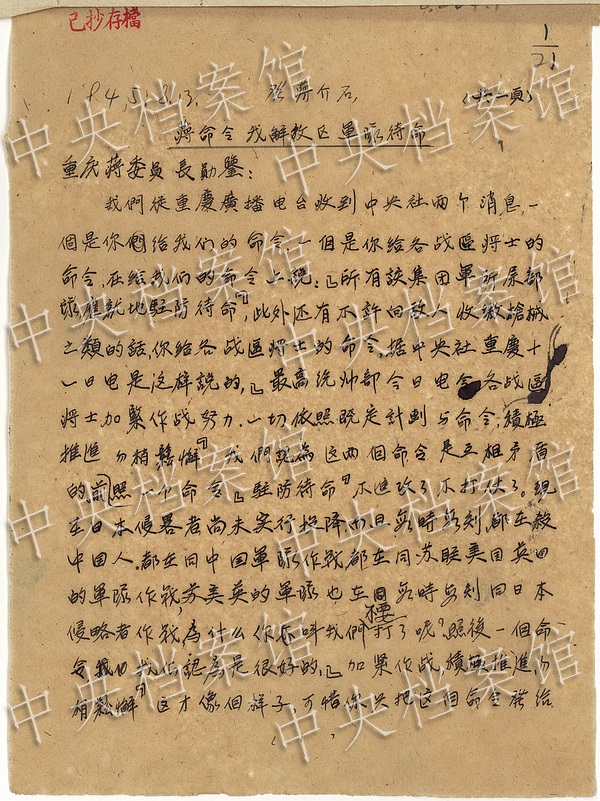 已抄存檔
1
21
1945.8.13. 蔣介石,
(共一頁)
蔣命令我解放区軍隊待命
重庆蔣委員長勛鑒:
我們從重慶廣播电台收到中央社两个消息,一
個是你們給我们的命令,一個是你給各战區将士的
命令,在給我们的命令上説:『所有該集团軍所屬部
隊應就地駐防待命』,此外还有不許向敌人收繳槍械
之類的話,你給各战區将士的命令,据中央社重慶十
一日电是这样説的,『最高统帅部今日电令各战區
将士加緊作战努力.一切依照既定計劃与命令,積極
推進勿稍鬆懈』我們認為这两個命令是互相矛盾
的前照一个命令『駐防待命』不進攻了,不打仗了。現
在日本侵畧者尚未实行投降,而且每時每刻都在殺
中国人.都在同中国軍隊作战,都在同苏联美国英国
的軍隊作战,苏美英的軍隊也在每時每刻同日本
侵略者作战,為什么你不叫我們打了呢?照後一個命
令我们認為是很好的,『加緊作战,積極推進,勿
稍鬆懈』这才像個样子.可惜你只把这個命令發给
中央档案馆